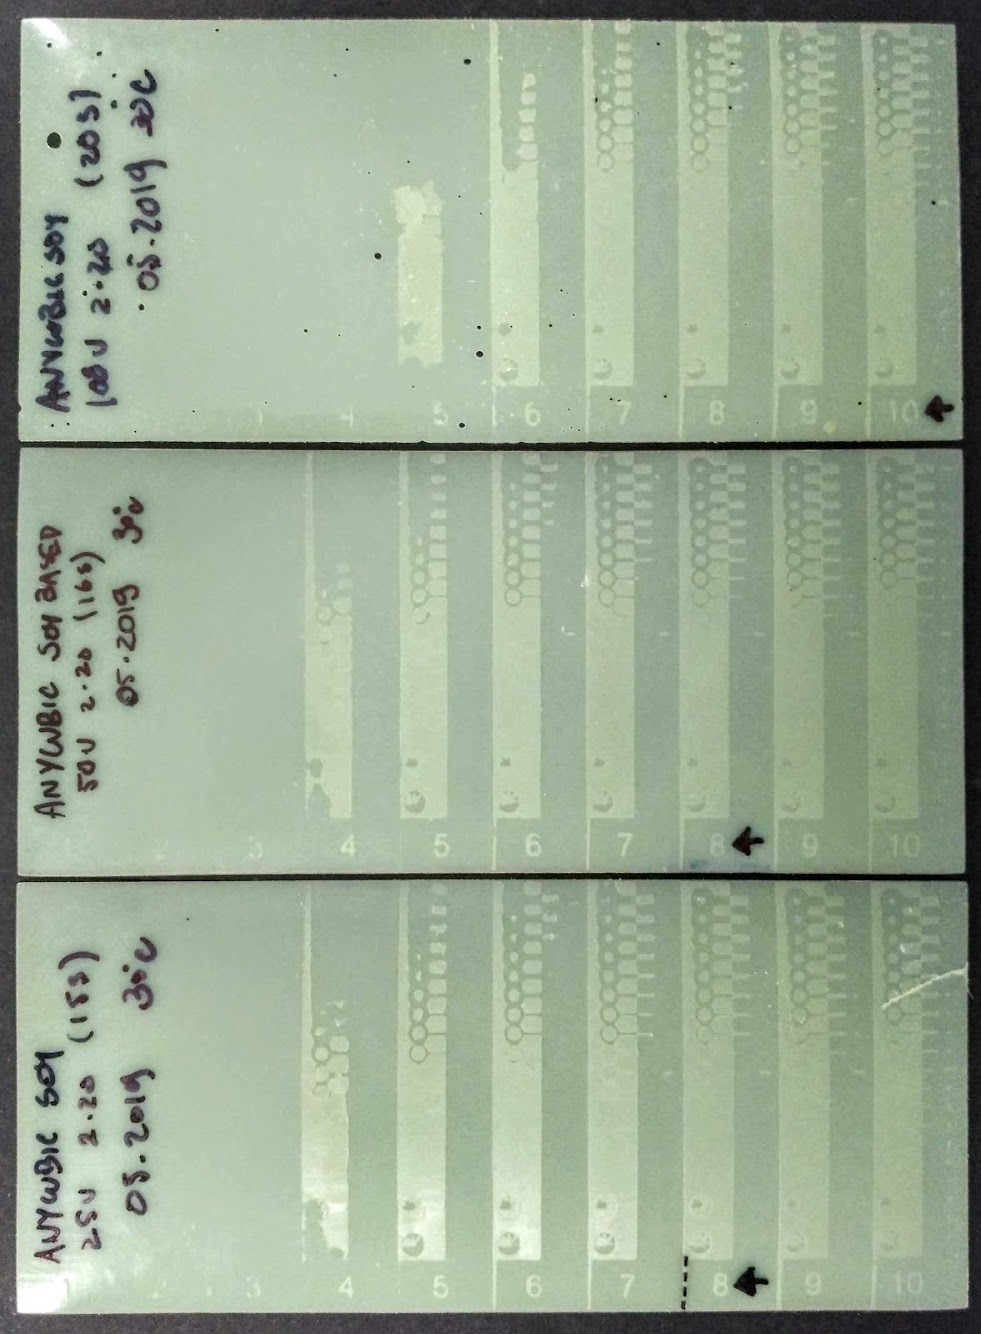 ANYCUBIC SOY
100 U 2.20 (20s)
05.2019 30°C
3 4 5 6 7 8 9 10
ANYCUBIC SOY BASED
50U 2.20 (16s)
05.2019 30°C
2 3 4 5 6 7 8 9 10
ANYCUBIC SOY
25U 2.20 (15s)
05.2019 30°C
2 3 4 5 6 7 8 9 10